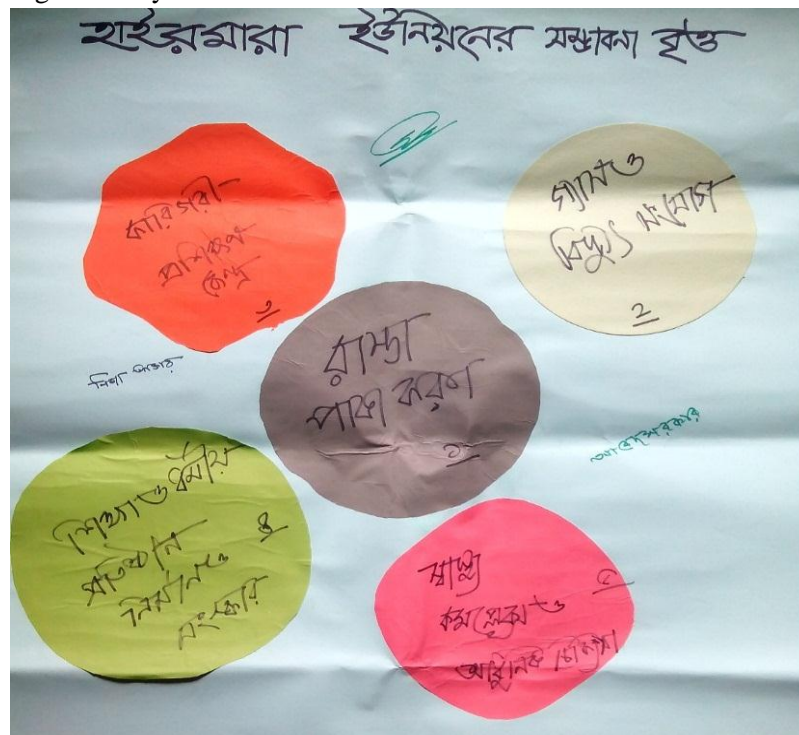 হাইরমারা ইউনিয়নের সম্ভাবনা বৃত্ত
কারিগরী
প্রশিক্ষণ
কেন্দ্র
৩
গ্যাস ও
বিদ্যুৎ সংযোগ
২
রাস্তা
পাকা করণ
১
শিক্ষা ও ধর্মীয়
প্রতিষ্ঠান
৪
নির্মান ও
সংস্কার
স্বাস্থ্য
৫
কমপ্লেক্স ও
আধুনিক চিকিৎসা